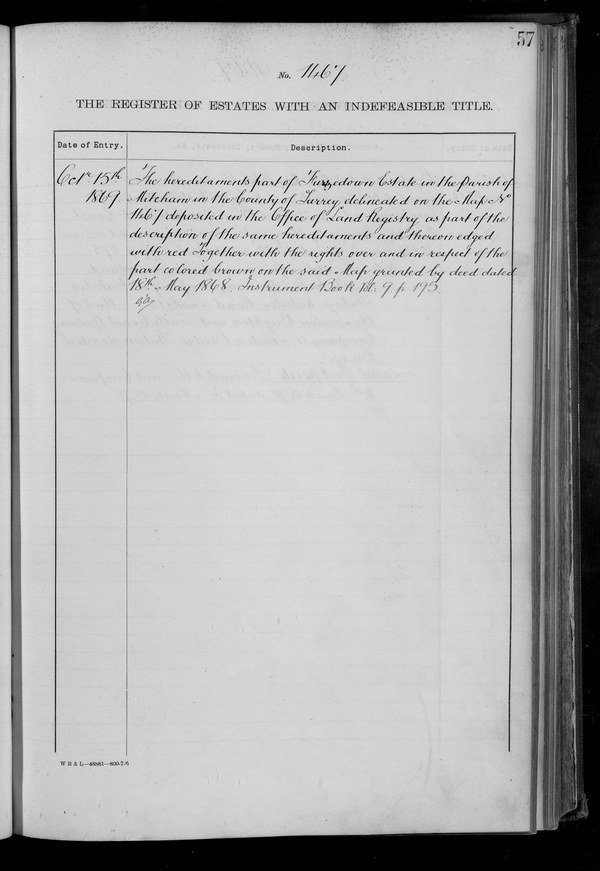 57
No. 1467
THE REGISTER OF ESTATES WITH AN INDEFEASIBLE TITLE.
Date of Entry.
Description.
Octr 15th
1869
The hereditaments part of Furzedown Estate in the Parish of
Mitcham in the County of Surrey delineated on the Map No
1467 deposited in the Office of Land Registry as part of the
description of the same hereditaments and thereon edged
with red Together with the rights over and in respect of the
part colored brown on the said Map granted by deed dated
18th May 1868. Instrument Book 9 p 195
W B & L—48881—800-7-6